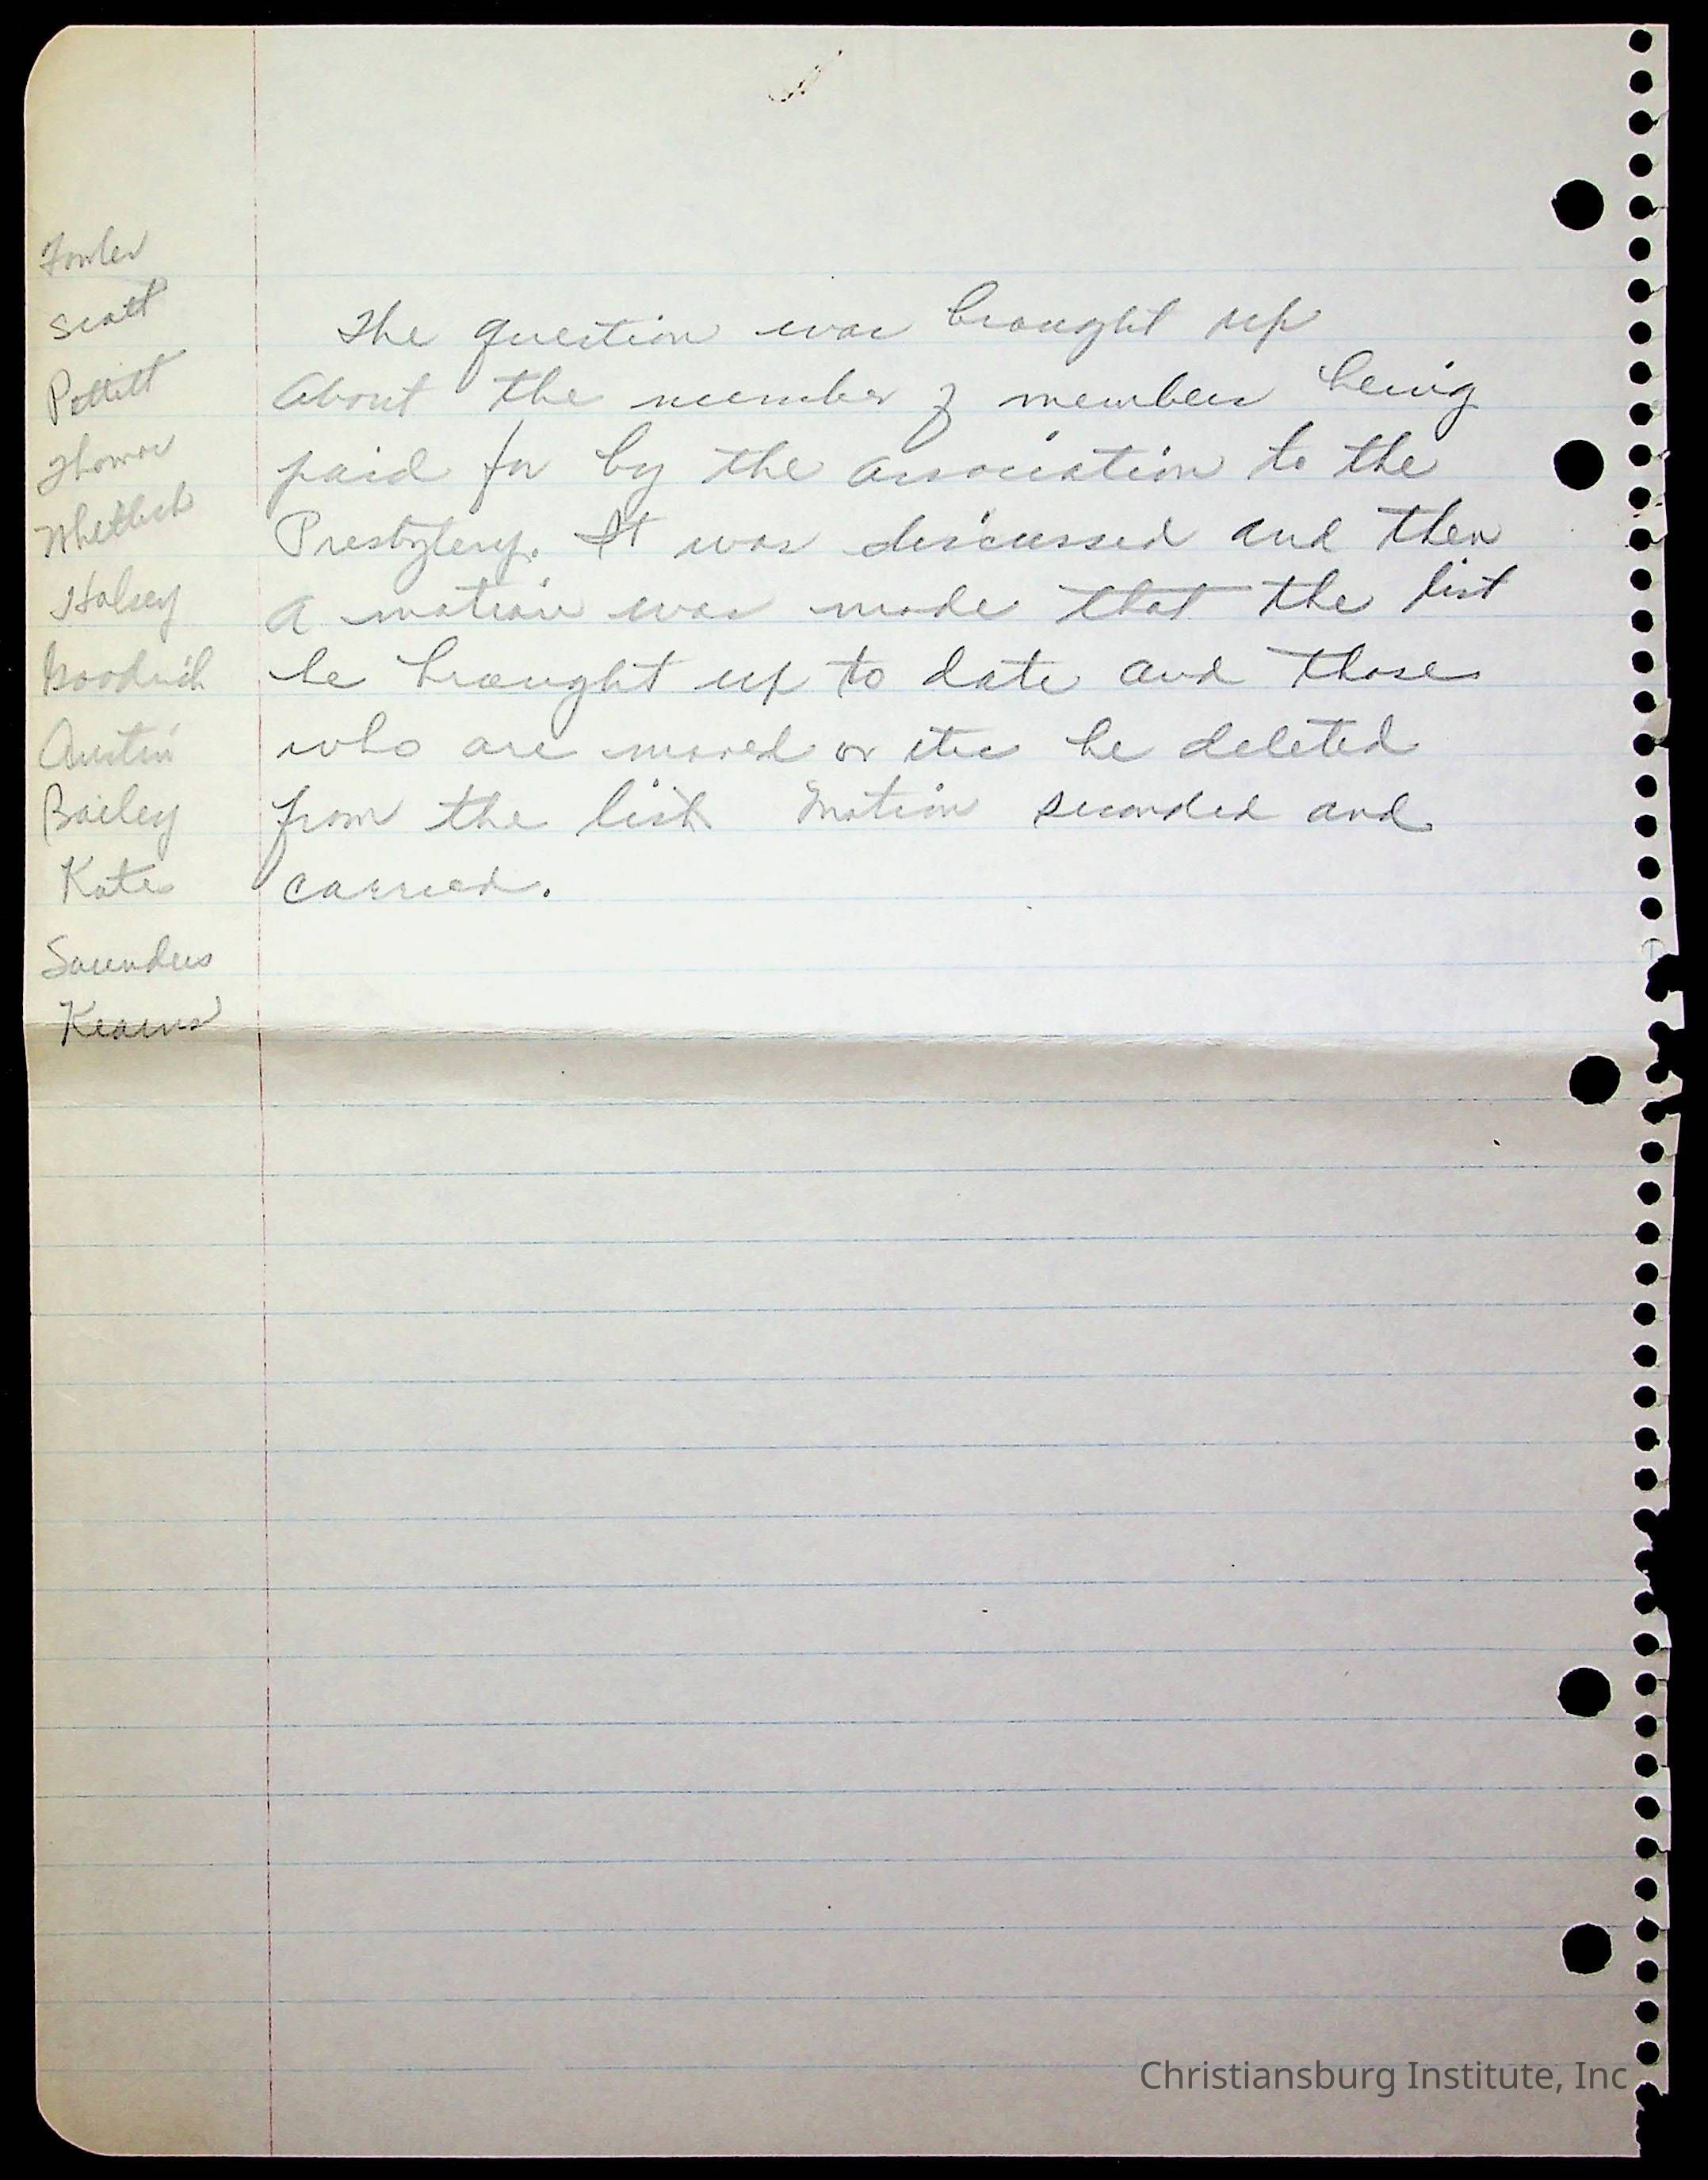 Fowler
Scott
Pettitt
Thomas
Holsey
Goodrich
Austin
Bailey
Kate
Saunders
Kearns
The question was brought up
about the number of members being
paid for by the association to the
Presbytery. It was discussed and then
a motion was made that the list
be brought up to date and those
who are moved or etc be deleted
from the list. Motion seconded and
carried.
Christiansburg Institute, Inc